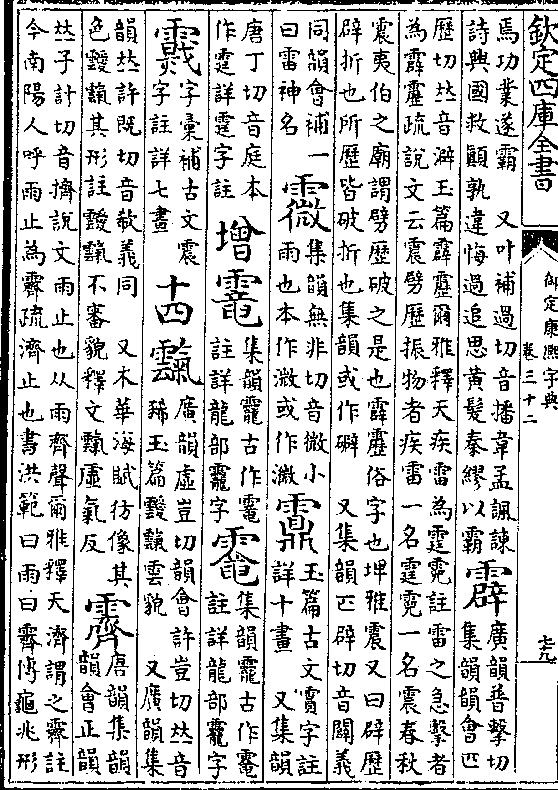 欽定四庫全書
御定康熙字典
卷三十二
七九
焉功業遂霸　又叶補過切音播韋孟諷諫
詩興國救顛孰違悔過追思黃髮秦繆以霸
霹
廣韻普擊切
集韻韻會匹
歷切𠀤音澼玉篇霹靂爾雅釋天疾雷為霆霓註雷之急擊者
為霹靂疏說文云震劈歷振物者疾雷一名霆霓一名震春秋
震夷伯之廟謂劈歷破之是也霹靂俗字也埤雅震又曰辟歷
辟折也所歷皆破折也集韻或作礔　又集韻匹辟切音闢義
同韻會補一
曰雷神名
霺
集韻無非切音微小
雨也本作溦或作濈
䨶
玉篇古文霣字註
詳十畫　又集韻
唐丁切音庭本
作霆詳霆字註
增
䨺
集韻靇古作䨺
註詳龍部靇字
集韻靇古作䨺
註詳龍部靇字
字彙補古文震
字註詳七畫
十四
䨠
廣韻虛豈切韻會許豈切𠀤音
豨玉篇靉䨠雲貌　又廣韻集
韻𠀤許既切音欷義同　又木華海賦彷像其
色靉䨠其形註靉䨠不審貌釋文䨠虛氣反
霽
唐韻集韻
韻會正韻
𠀤子計切音擠說文雨止也从雨齊聲爾雅釋天濟謂之霽註
今南陽人呼雨止為霽疏濟止也書洪範曰雨曰霽傳龜兆形